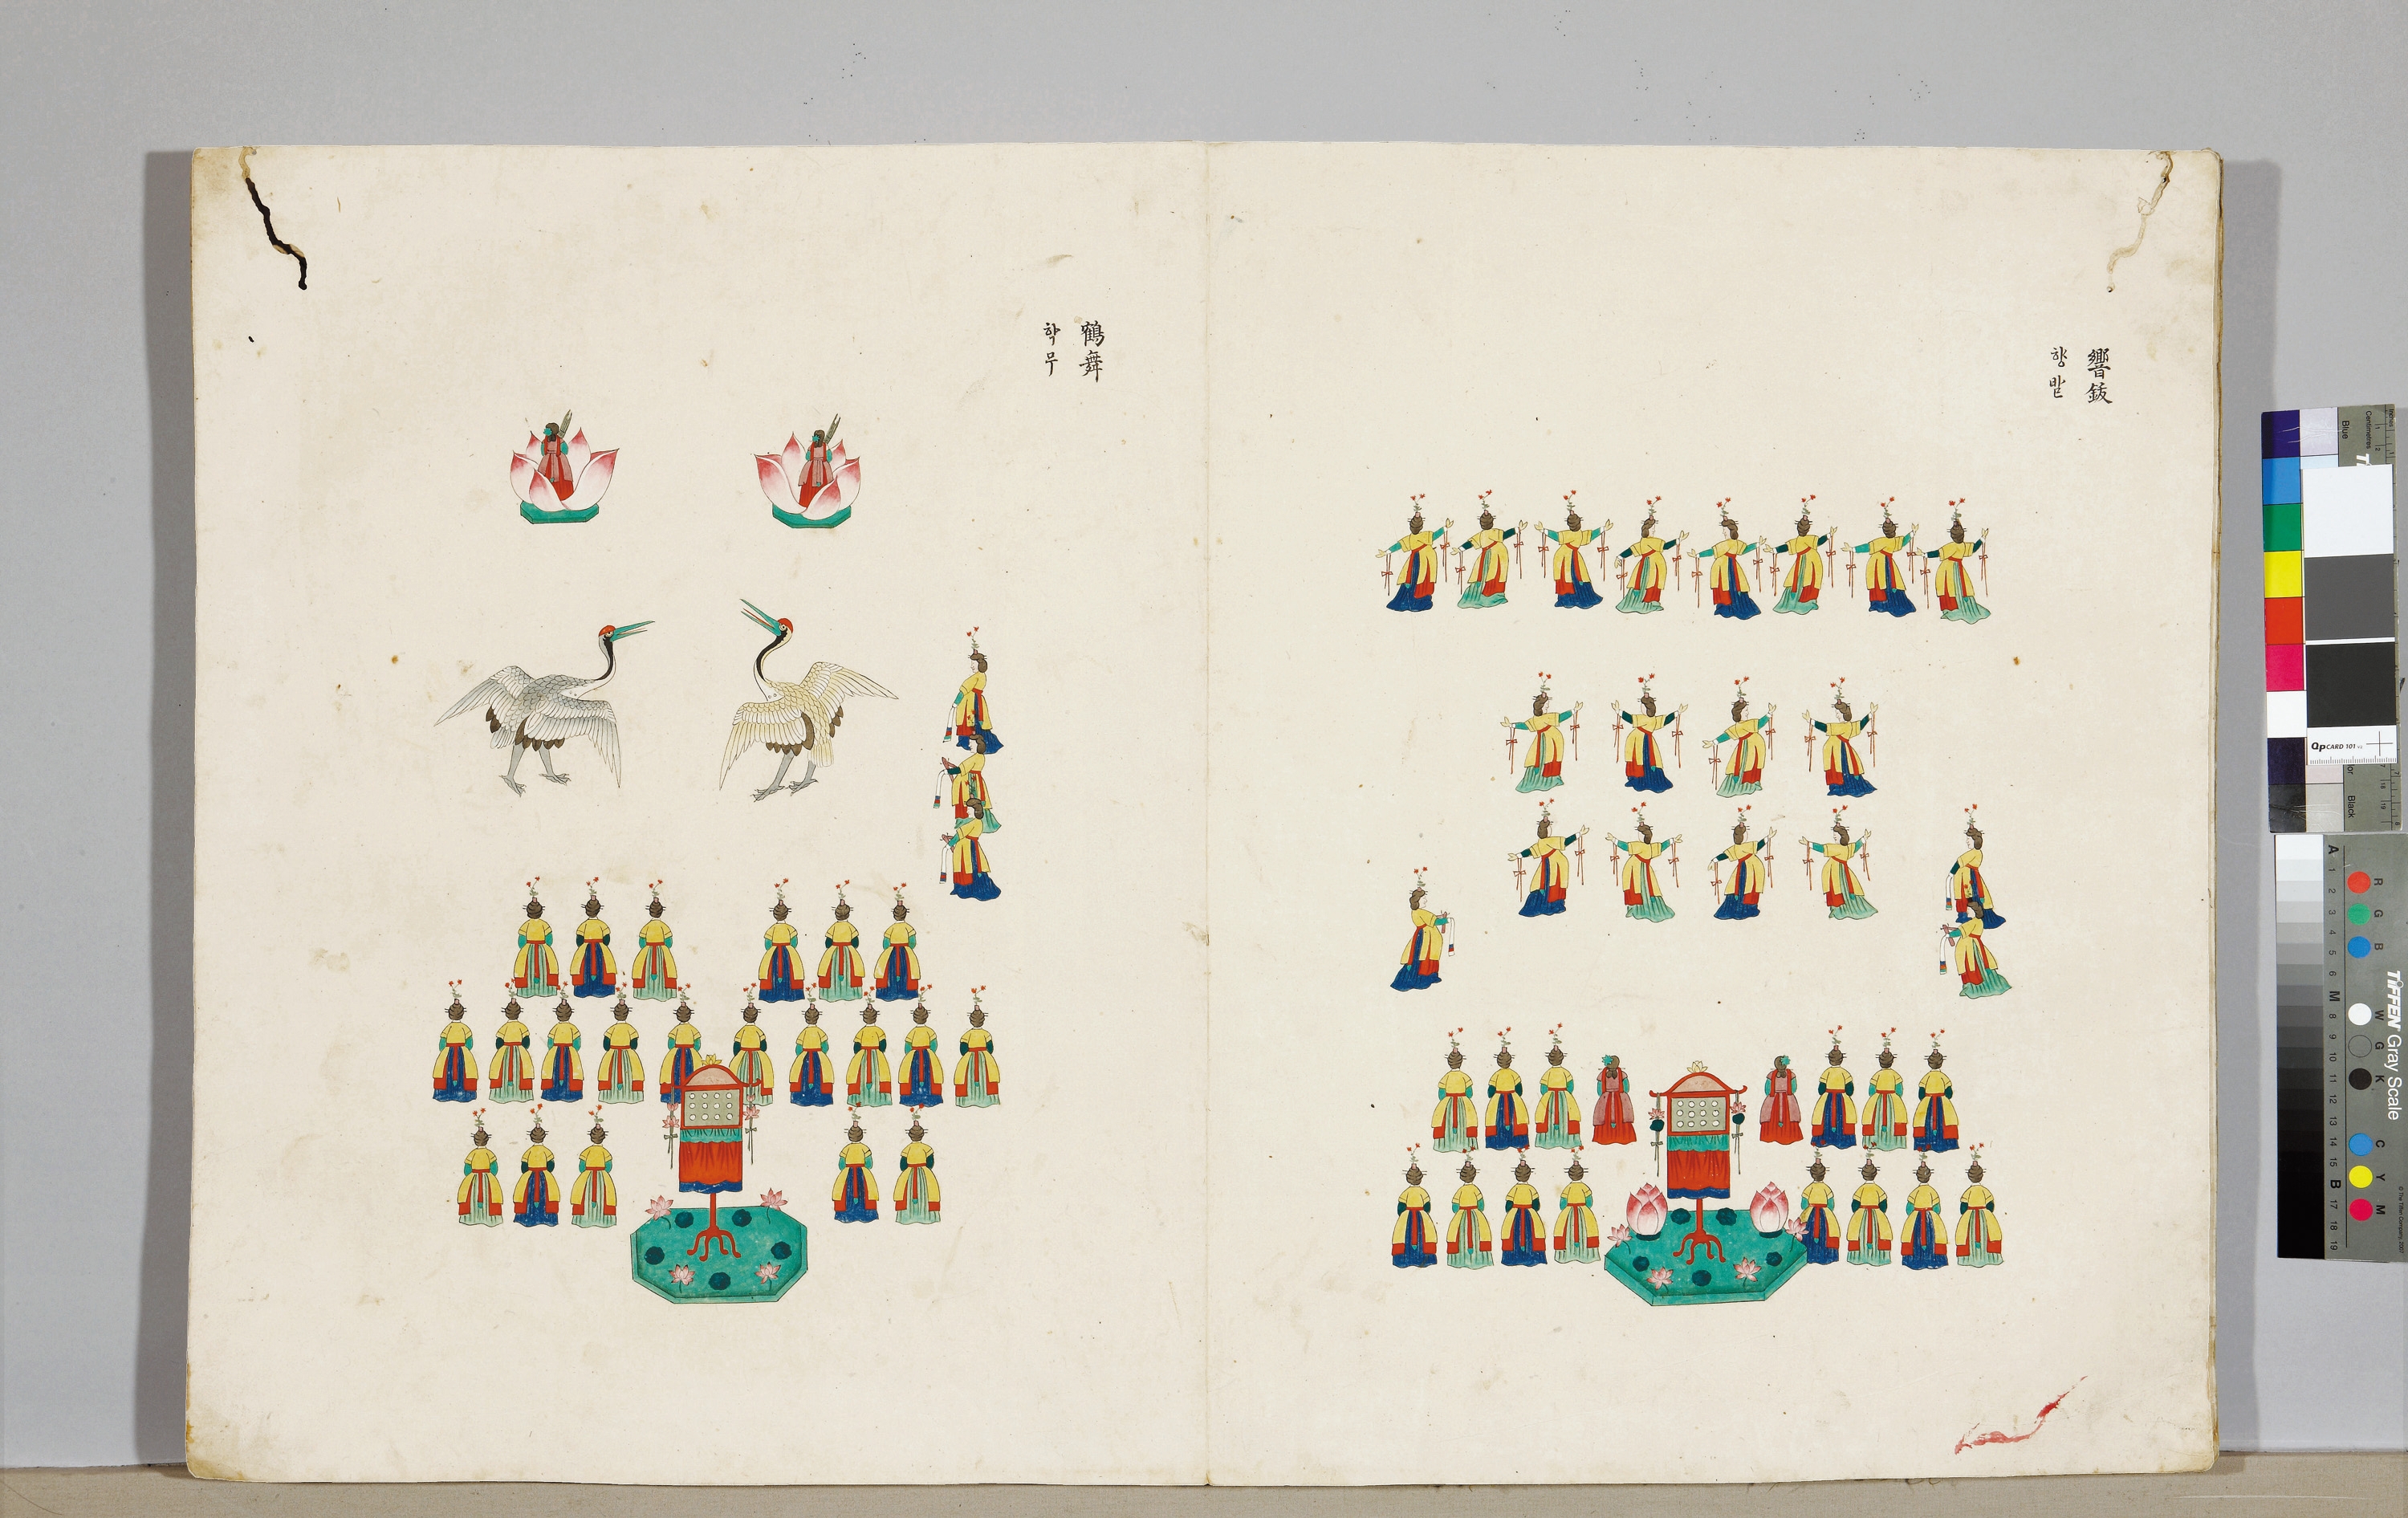 響鈸
향발
鶴舞
학무
Blue
Centimetres
Inches
QpCARD 101 v3
Black
TIFFEN Gray Scale
© The Tiffen Company, 2007
R
G
B
W
G
K
C
Y
M
A
1
2
3
4
5
6
M
8
9
10
11
12
13
14
15
B
17
18
19